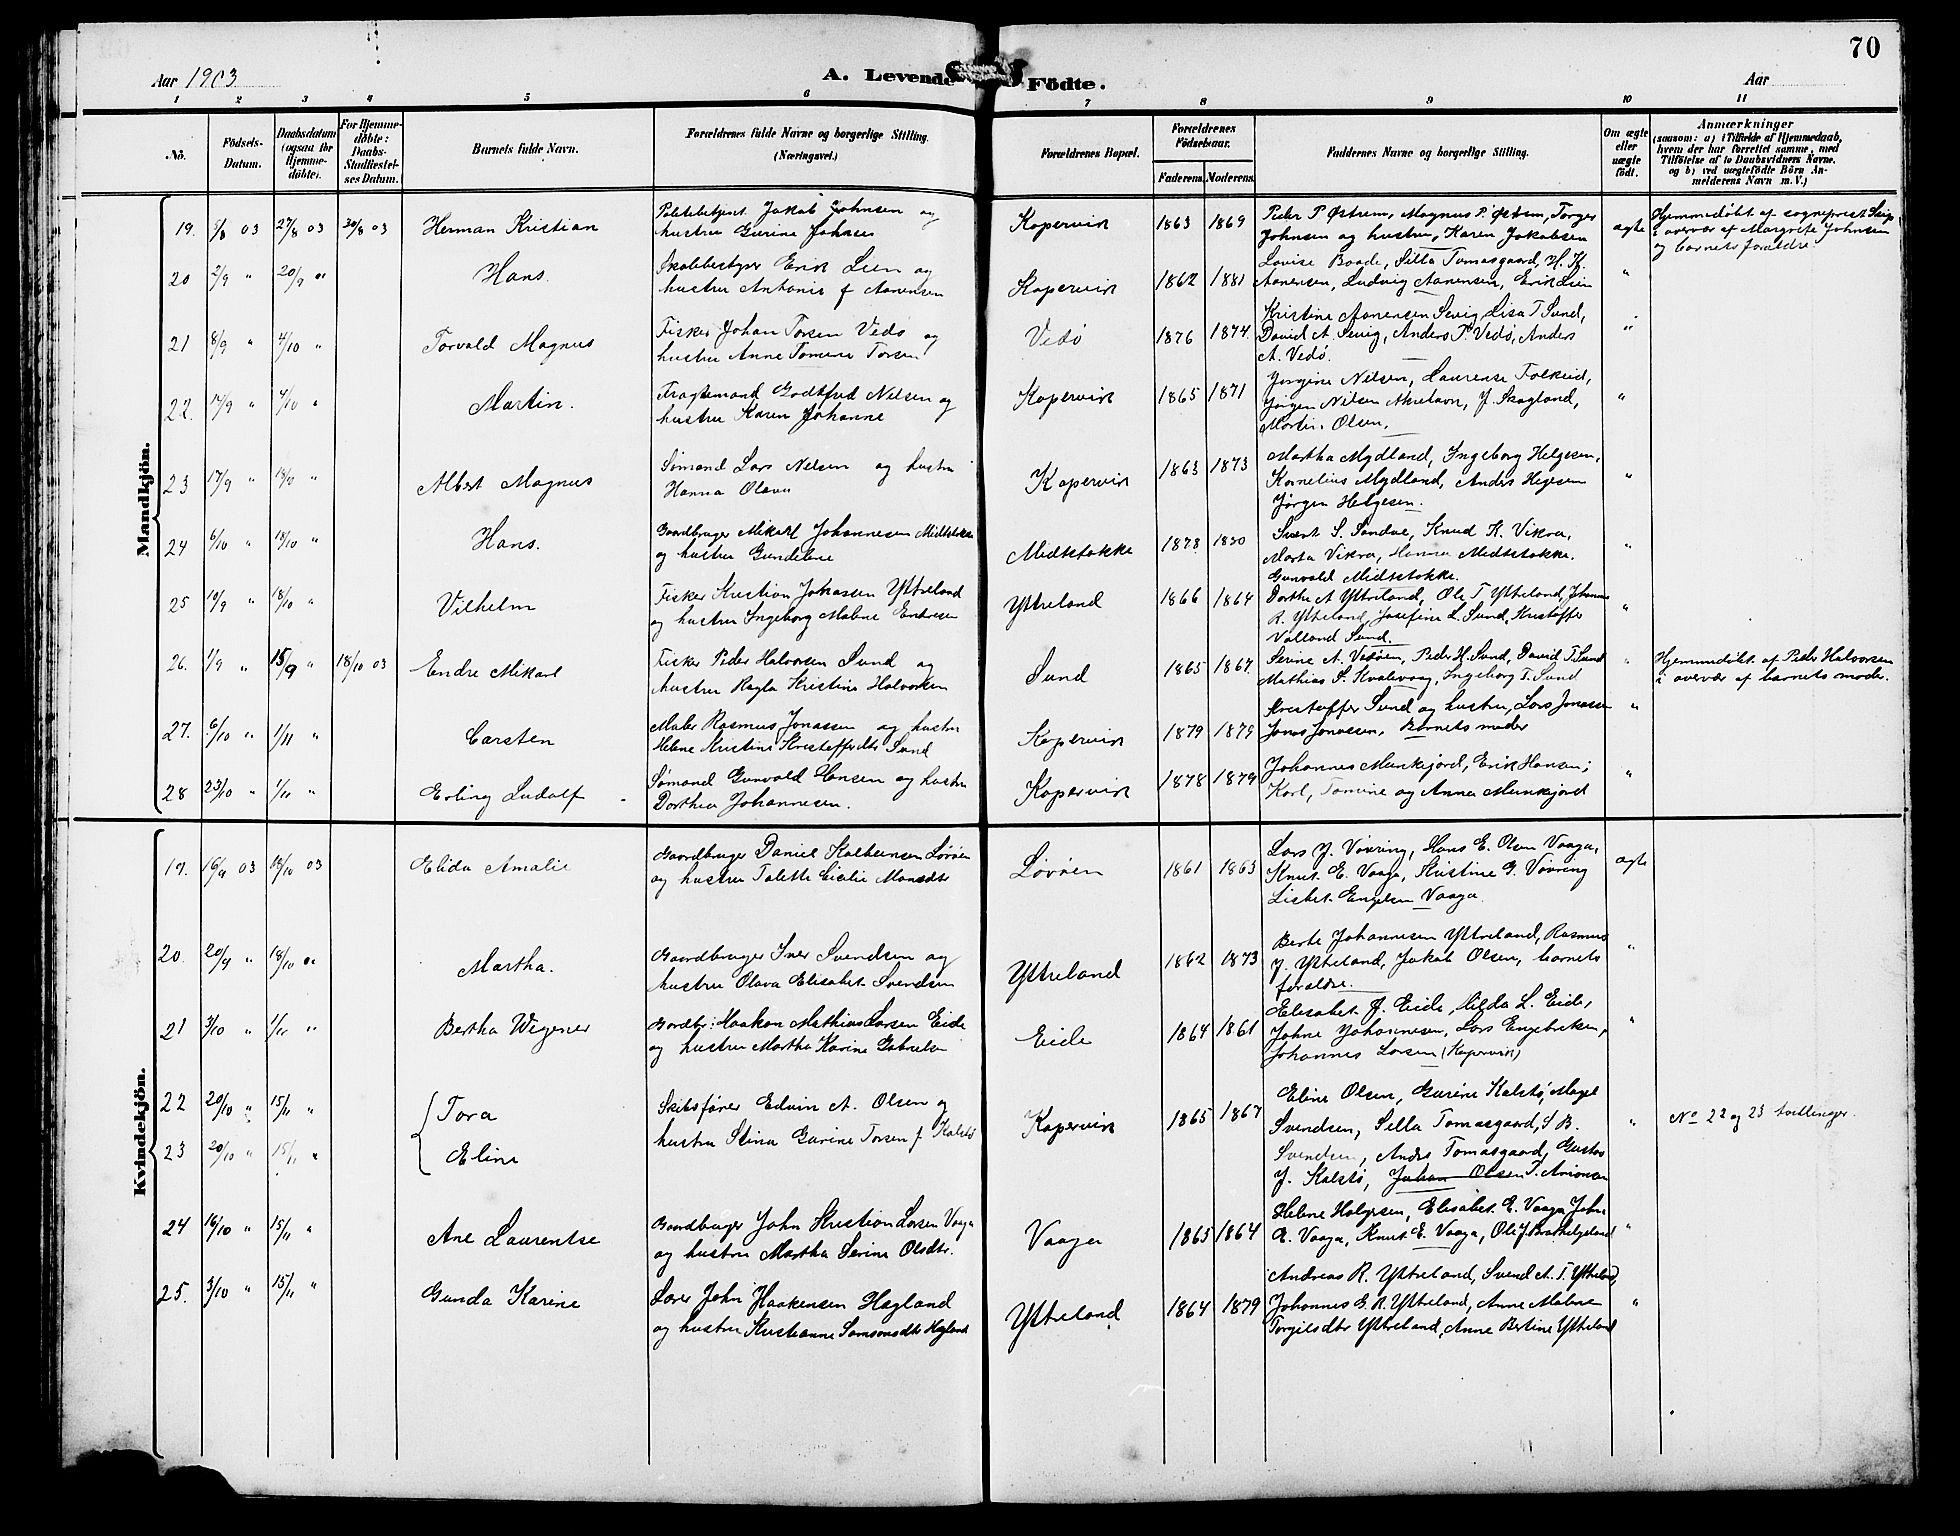 70
Aar 1903
A. Levende Födte.
Aar
1 2 3 4 5 6 7 8 9 10 11
No.
Födsels-Datum.
Daabsdatum (ogsaa for Hjemme-döbte).
For Hjemme-döbte: Daabs-Stadfæstel-ses Datum.
Barnets fulde Navn.
Forældrenes fulde Navne og borgerlige Stilling. (Næringsvei.)
Forældrenes Bopæl.
Forældrenes Födselsaar.
Faderens. Moderens.
Faddernes Navne og borgerlige Stilling.
Om ægte eller uægte födt.
Anmærkninger
(saasom: a) i Tilfælde af Hjemmedaab,
hvem der har forrettet samme, med
Tilföielse af to Daabsvidners Navne.
og b) ved uægtefödte Börn An-
melderens Navn m. V.)
Mandkjön.
19. 5/8 03 27/8 03 30/8 03 Herman Kristian
Politibetjent Jakob Johnsen og
hustru Gurine Johnsen
Kopervik 1863 1869
Peder P. Østrem, Magnus P. Østrem, Torger
Johnsen og hustru, Karen Jakobsen
ægte
Hjemmedøbt af sogneprest
i overvær af Margrete Johnsen
og barnets forældre
20 2/9 " 20/9 " Hans.
Skolebestyrer Erik Lien og
hustru Antonie f. Aanensen
Kopervik 1862 1881
Lovise Baade, Silla Tomasgaard, H. K.
Aanensen, Ludvig Aanensen, Erik Lien
"
21 8/9 " 4/10 " Torvald Magnus
Fisker Johan Torsen Vedø og
hustru Anne Tomine Torsen
Vedø 1876 1874.
Kristine Aanensen Sevig, Lisa T Sund,
David A. Sevig, Anders T. Vedø, Anders
A. Vedø.
"
22. 14/9 " 4/10 " Martin.
Fragtemand Godtfred Nilsen og
hustru Karen Johanne
Kopervik 1865 1871
Jørgine Nilsen, Laurense Folkvid,
Jørgen Nilsen Akrehavn, J. Skagland,
Martin Olsen.
"
23 17/9 " 18/10 " Albert Magnus
Sømand Lars Nilsen og hustru
Hanna Olava
Kopervik 1863 1873
Martha Mydland, Ingeborg Helgesen,
Kornelius Mydland, Anders Hegesen
Jørgen Helgesen.
"
24 6/10 " 18/10 " Hans.
Gaardbruger Mikael Johannesen Midtstokke
og hustru Gundeline
Midtstokke 1878 1880
Sivert S. Sandve, Knud K. Vikra,
Marta Vikra, Hanna Midtstokke.
Gunvald Midtstokke.
"
25 10/9 " 18/10 " Vilhelm
Fisker Kristian Johassen Ytreland
og hustru Ingeborg Malene Endresen
Ytreland 1866 1864
Dorthe A Ytreland, Ole T Ytreland, Johannes
R. Ytreland, Josefine L. Sund, Kristoffer
Valland Sund.
"
26. 1/9 " 15/9 " 18/10 03 Endre Mikael
Fisker Peder Halvorsen Sund og
hustru Ragla Kristine Halvorsen
Sund 1865 1867.
Serine A. Vedøen, Peder H. Sund, David T Sund
Mathias S. Kvalevaag, Ingeborg T. Sund
"
Hjemmedøbt af Peder Halvorsen
i overvær af barnets moder.
27. 6/10 " 1/11 " Carsten
Maler Rasmus Jonassen og hustru
Helene Kristine Kristoffersdtr Sund
Kopervik 1879 1879
Kristoffer Sund og hustru, Lars Jonassen
Jonas Jonassen, Barnets moder
"
28 23/10 " 1/11 " Erling Ludolf
Sømand Gunvald Hansen og hustru
Dorthea Johannesen.
Kopervik 1878 1879
Johannes Munkejord, Erik Hansen,
Karl, Tomine og Anna Munkejord
"
Kvindekjön.
19. 16/9 03 18/10 03 Elida Amalie
Gaardbruger Daniel Kolbeinsen Løvøen
og hustru Talette Cicilie Monsdtr
Løvøen 1861 1863
Lars J. Vovring, Hans E. Olsen Vaaga,
Knut E. Vaaga, Kristine G. Vovring
Lisbet Engelsen Vaaga
ægte
20. 20/9 " 18/10 " Martha.
Gaardbruger Iver Svendsen og
hustru Olava Elisabet Svendsen
Ytreland 1862 1873
Berte Johannesen Ytreland, Rasmus
J. Ytreland, Jakob Olsen, barnets
forældre.
"
21 3/10 " 1/11 " Bertha Wegener
Gardbr: Haakon Mathias Larsen Eide
og hustru Martha Karine Gabrielsen
Eide 1864 1861
Elisabet J. Eide, Alida L. Eide,
Johne Johannesen, Lars Engebretsen,
Johannes Larsen (Kopervik)
"
22 20/10 " 15/11 " Tora
23 20/10 " 15/11 " Eline
Skibsfører Edvin A. Olsen og
hustru Stina Gurine Torsen f. Kalstø
Kopervik 1865 1867
Eline Olsen, Gurine Kalstø, Magel
Svendsen, Silla Tomasgaard, S B.
Svendsen, Anders Tomasgaard, Gustav
J. Kalstø, Johan Olsen T.
"
No 22 og 23 tvillinger.
24 16/10 " 15/11 " Ane Laurentse
Gaardbruger John Kristian Larsen Vaaga
og hustru Martha Serine Olsdtr.
Vaaga 1865 1864
Helene Holgersen, Elisabet E. Vaaga, John
E. Vaaga, Knut E. Vaaga, Ole J. Brathelgeland
"
25. 3/10 " 15/11 " Gunda Karine
Lærer John Haakensen Hagland
og hustru Kristianne Samsonsdtr Hagland
Ytreland 1864 1879
Andreas R. Ytreland, Svend A. T. Ytreland,
Johannes G. R. Ytreland, Anne Malene
Torgilsdtr Ytreland, Anne Bertine Ytreland
"